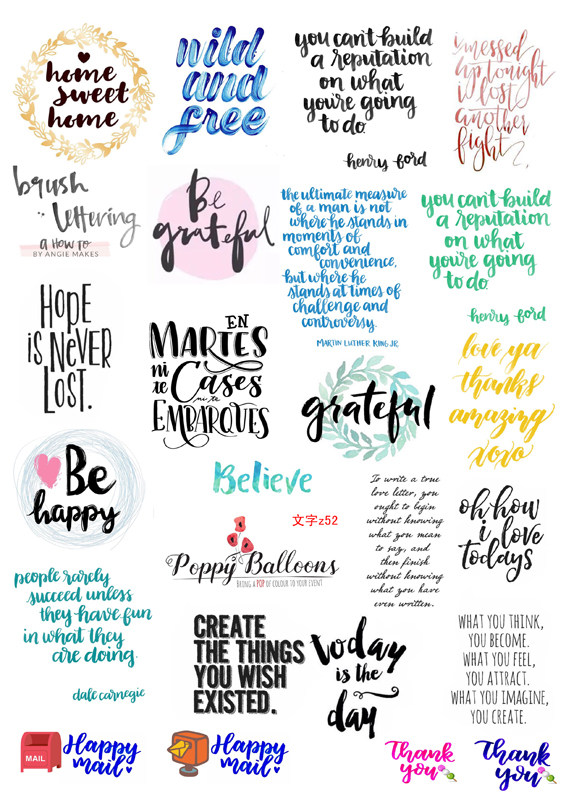 home
sweet
home
wild
and
free
you can't build
a reputation
on what
you're going
to do.
henry ford
i messed
up tonight
i lost
another
fight
brush
lettering
a How to
BY ANGIE MAKES
Be
grateful
the ultimate measure
of a man is not
where he stands in
moments of
comfort and
convenience,
but where he
stands at times of
challenge and
controversy.
MARTIN LUTHER KING JR.
you can't build
a reputation
on what
you're going
to do.
henry ford
HOPE
IS NEVER
LOST.
EN
MARTES
ni te
Cases
ni te
EMBARQUES
grateful
love ya
thanks
amazing
xoxo
Be
happy
Believe
文字z52
Poppy Balloons
BRING A POP OF COLOUR TO YOUR EVENT
To write a true
love letter, you
ought to begin
without knowing
what you mean
to say, and
then finish
without knowing
what you have
even written.
oh how
i love
todays
people rarely
succeed unless
they have fun
in what they
are doing.
dale carnegie
CREATE
THE THINGS
YOU WISH
EXISTED.
today
is the
day
WHAT YOU THINK,
YOU BECOME.
WHAT YOU FEEL,
YOU ATTRACT.
WHAT YOU IMAGINE,
YOU CREATE.
MAIL
Happy
mail
Happy
mail
Thank
you
Thank
you